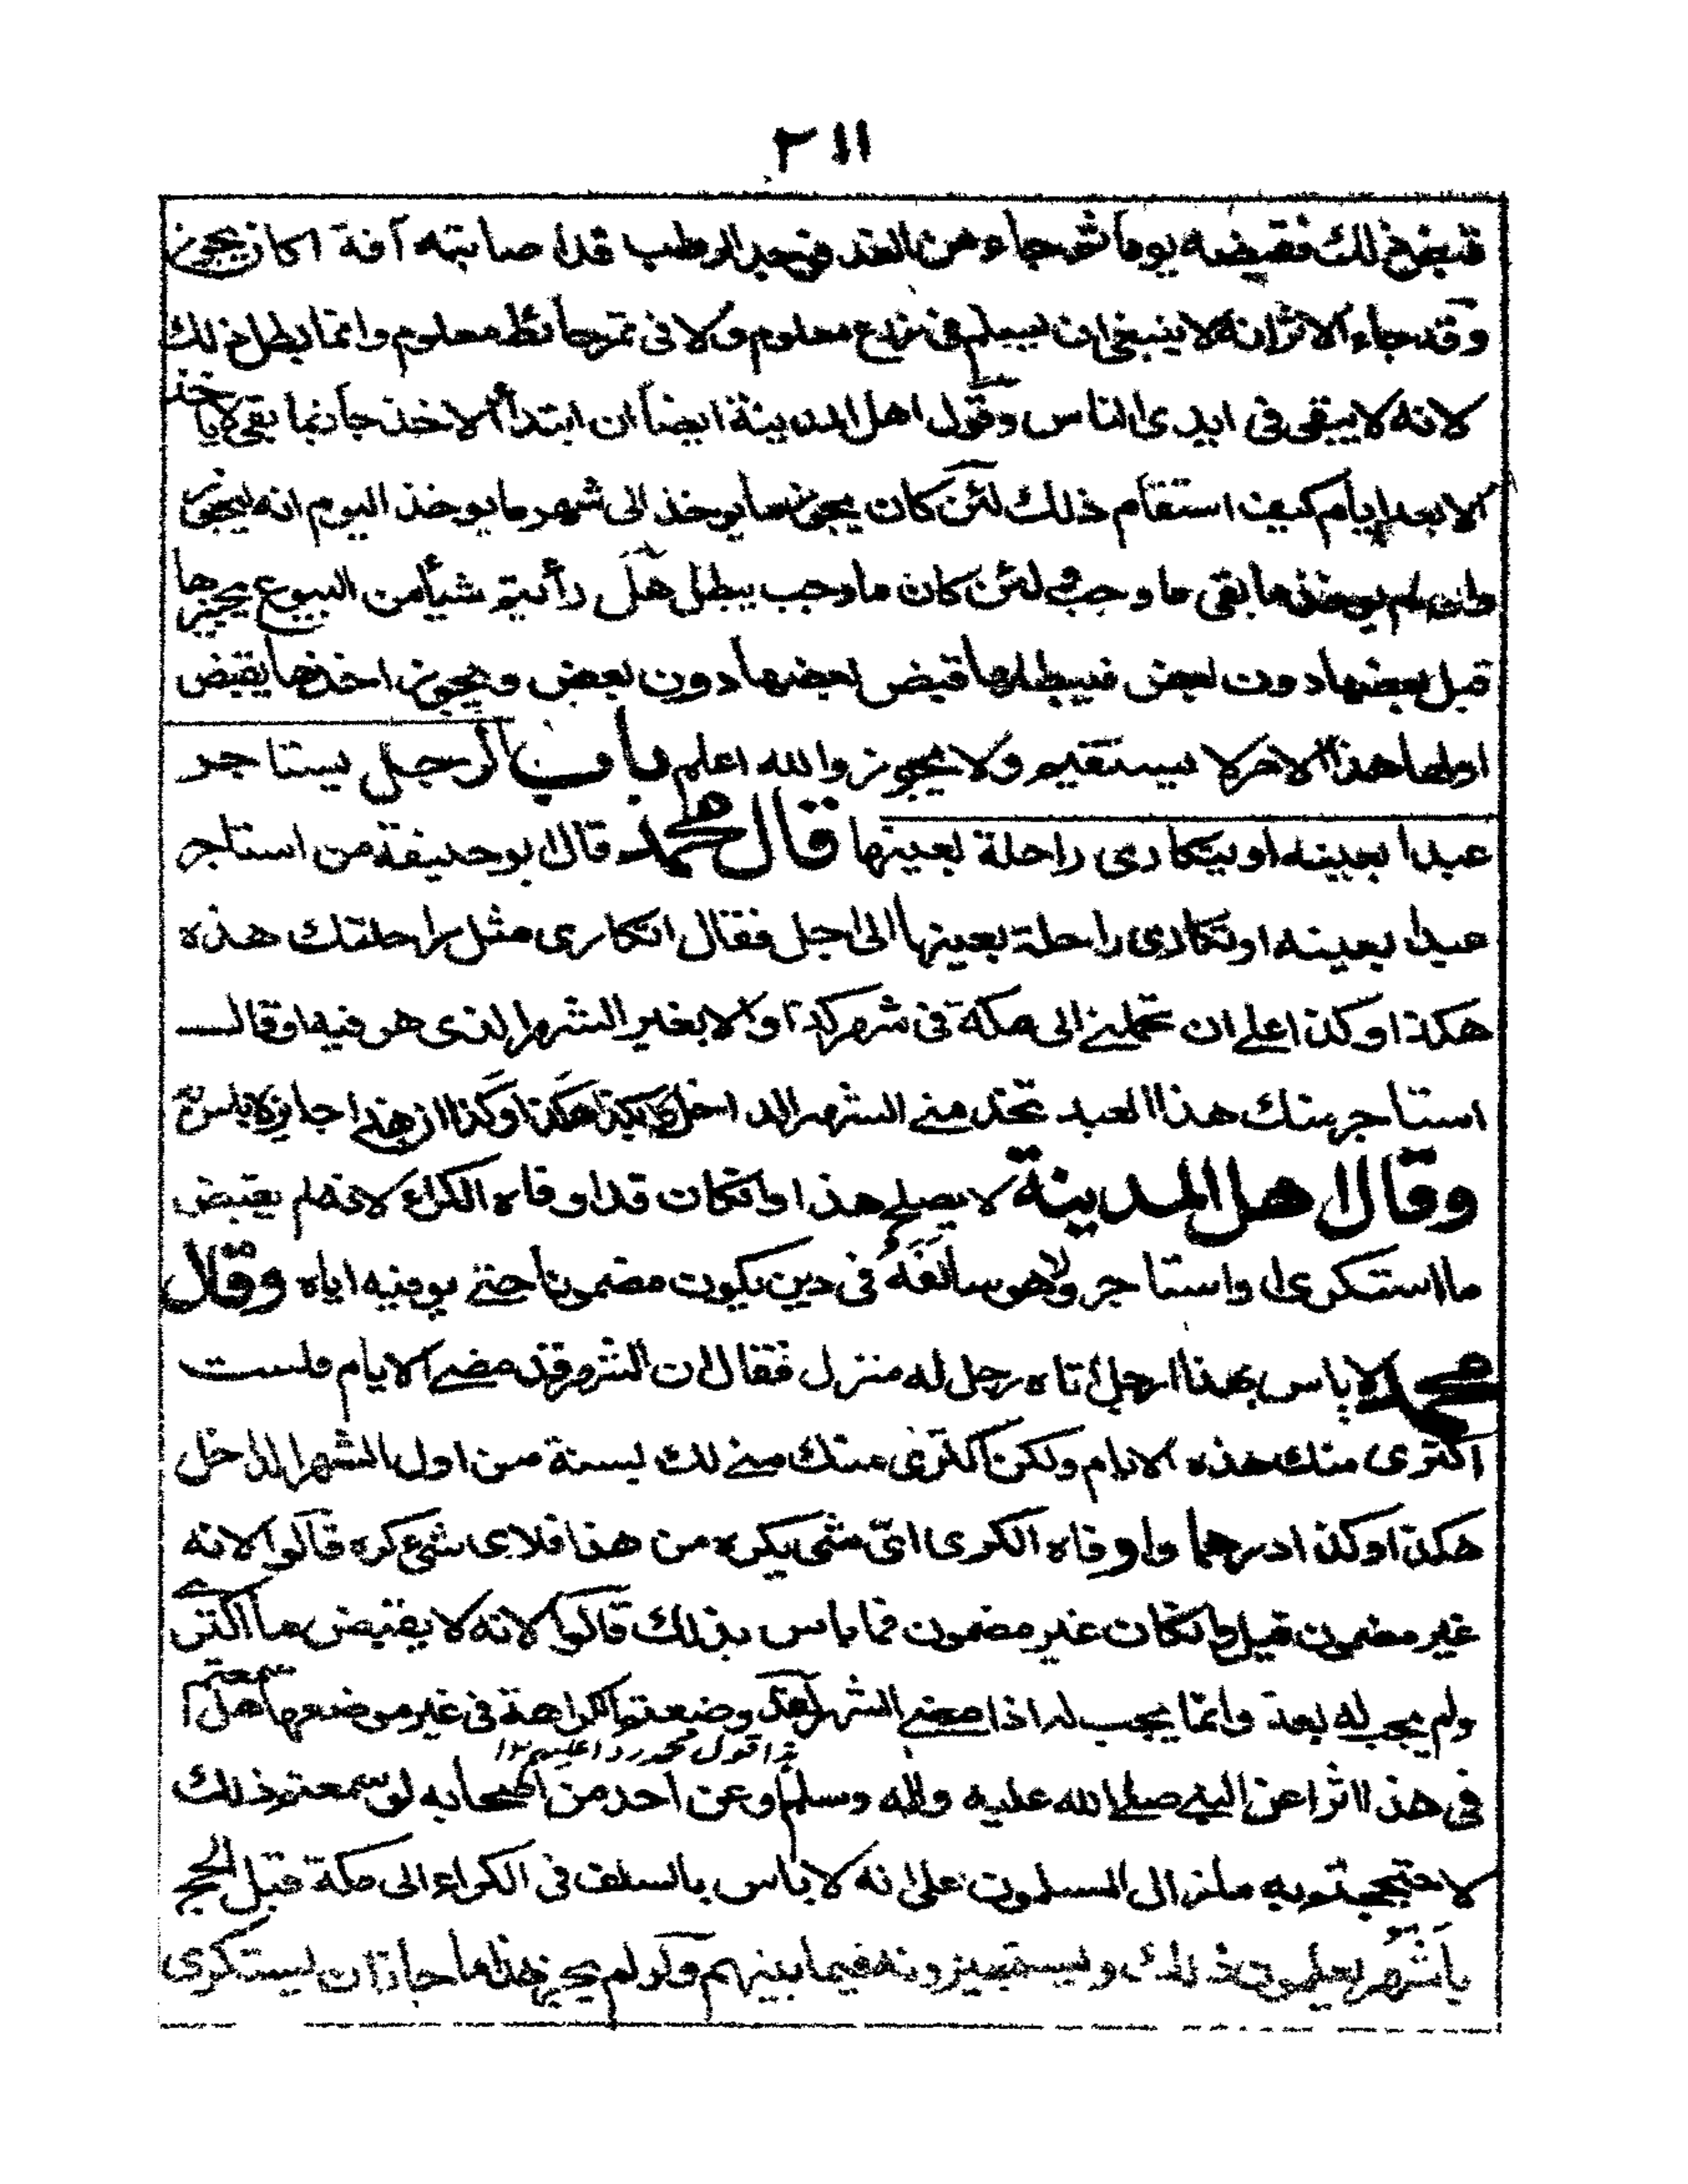 ٢١١
قبض ذلك فقبضه يوما ثم جاء من الغد فوجد الرطب قد اصابته آفة اكان يجوز
وقد جاء الاثر انه لا ينبغي ان يسلم في زرع معلوم ولا في تمر حائط معلوم وانما يطل ذلك
لانه لا يبقى في ايدى الناس وقول اهل المدينة ايضا ان ابتدأ الاخذ جاز فما بقى لا ياخذ
الا بعد ايام كيف استقام ذلك لئن كان يجوز ما يوخذ الى شهر ما يوخذ اليوم انه ليجوز
وان لم يوخذ ما بقى ما وجب لئن كان ما وجب يبطل هل رأيتم شيأ من البيوع يجيزها
قبل بعضها دون بعض فيبطلها قبض بعضها دون بعض ويجوز اخذها يقبض
اولها هذا الامر لا يستقيم ولا يجوز والله اعلم باب الرجل يستاجر
عبدا بعينه او يتكارى راحلة بعينها قال محمد قال ابو حنيفة من استاجر
عبدا بعينه او تكارى راحلة بعينها الى اجل فقال اتكارى مثل راحلتك هذه
هكذا وكذا على ان تحملني الى مكة في شهر كذا اولا بغير الشهر الذى هو فيه او قال
استاجر منك هذا العبد تخدمني الشهر الداخل هكذا وكذا ان هذا جايز لا باس به
وقال اهل المدينة لا يصلح هذا وان كان قد اوفاه الكراء لانه لم يقبض
ما استكرى او استاجر ولا هو سالفه في دين يكون مضمونا حتى يوفيه اياه وقال
محمد لا باس بهذا ارجل اتاه رجل له منزل فقال ان الشهر قد مضى الايام فلست
اكترى منك هذه الايام ولكن اكترى منك منزلك لسنة من اول الشهر الداخل
هكذا وكذا درهما واوفاه الكرى اى شى يكره من هذا فلاى شئ كره قالوا لانه
غير مضمون قيل وان كان غير مضمون فما باس بذلك قالوا لانه لا يقبض ما اكترى
ولم يجب له بعد وانما يجب له اذا مضى الشهر وضعتم الكراهة في غير موضعها هل سمعتم
هذا قول محمد ردا عليهم ١٢
في هذا اثرا عن النبي صلى الله عليه واله وسلم او عن احد من اصحابه لو سمعتم ذلك
لاحتججتم به ما زال المسلمون على انه لا باس بالسلف في الكراء الى مكة قبل الحج
باشهر يعلمون ذلك ويستجيزونه فيما بينهم ولو لم يجز هذا ما جاز ان يستكرى